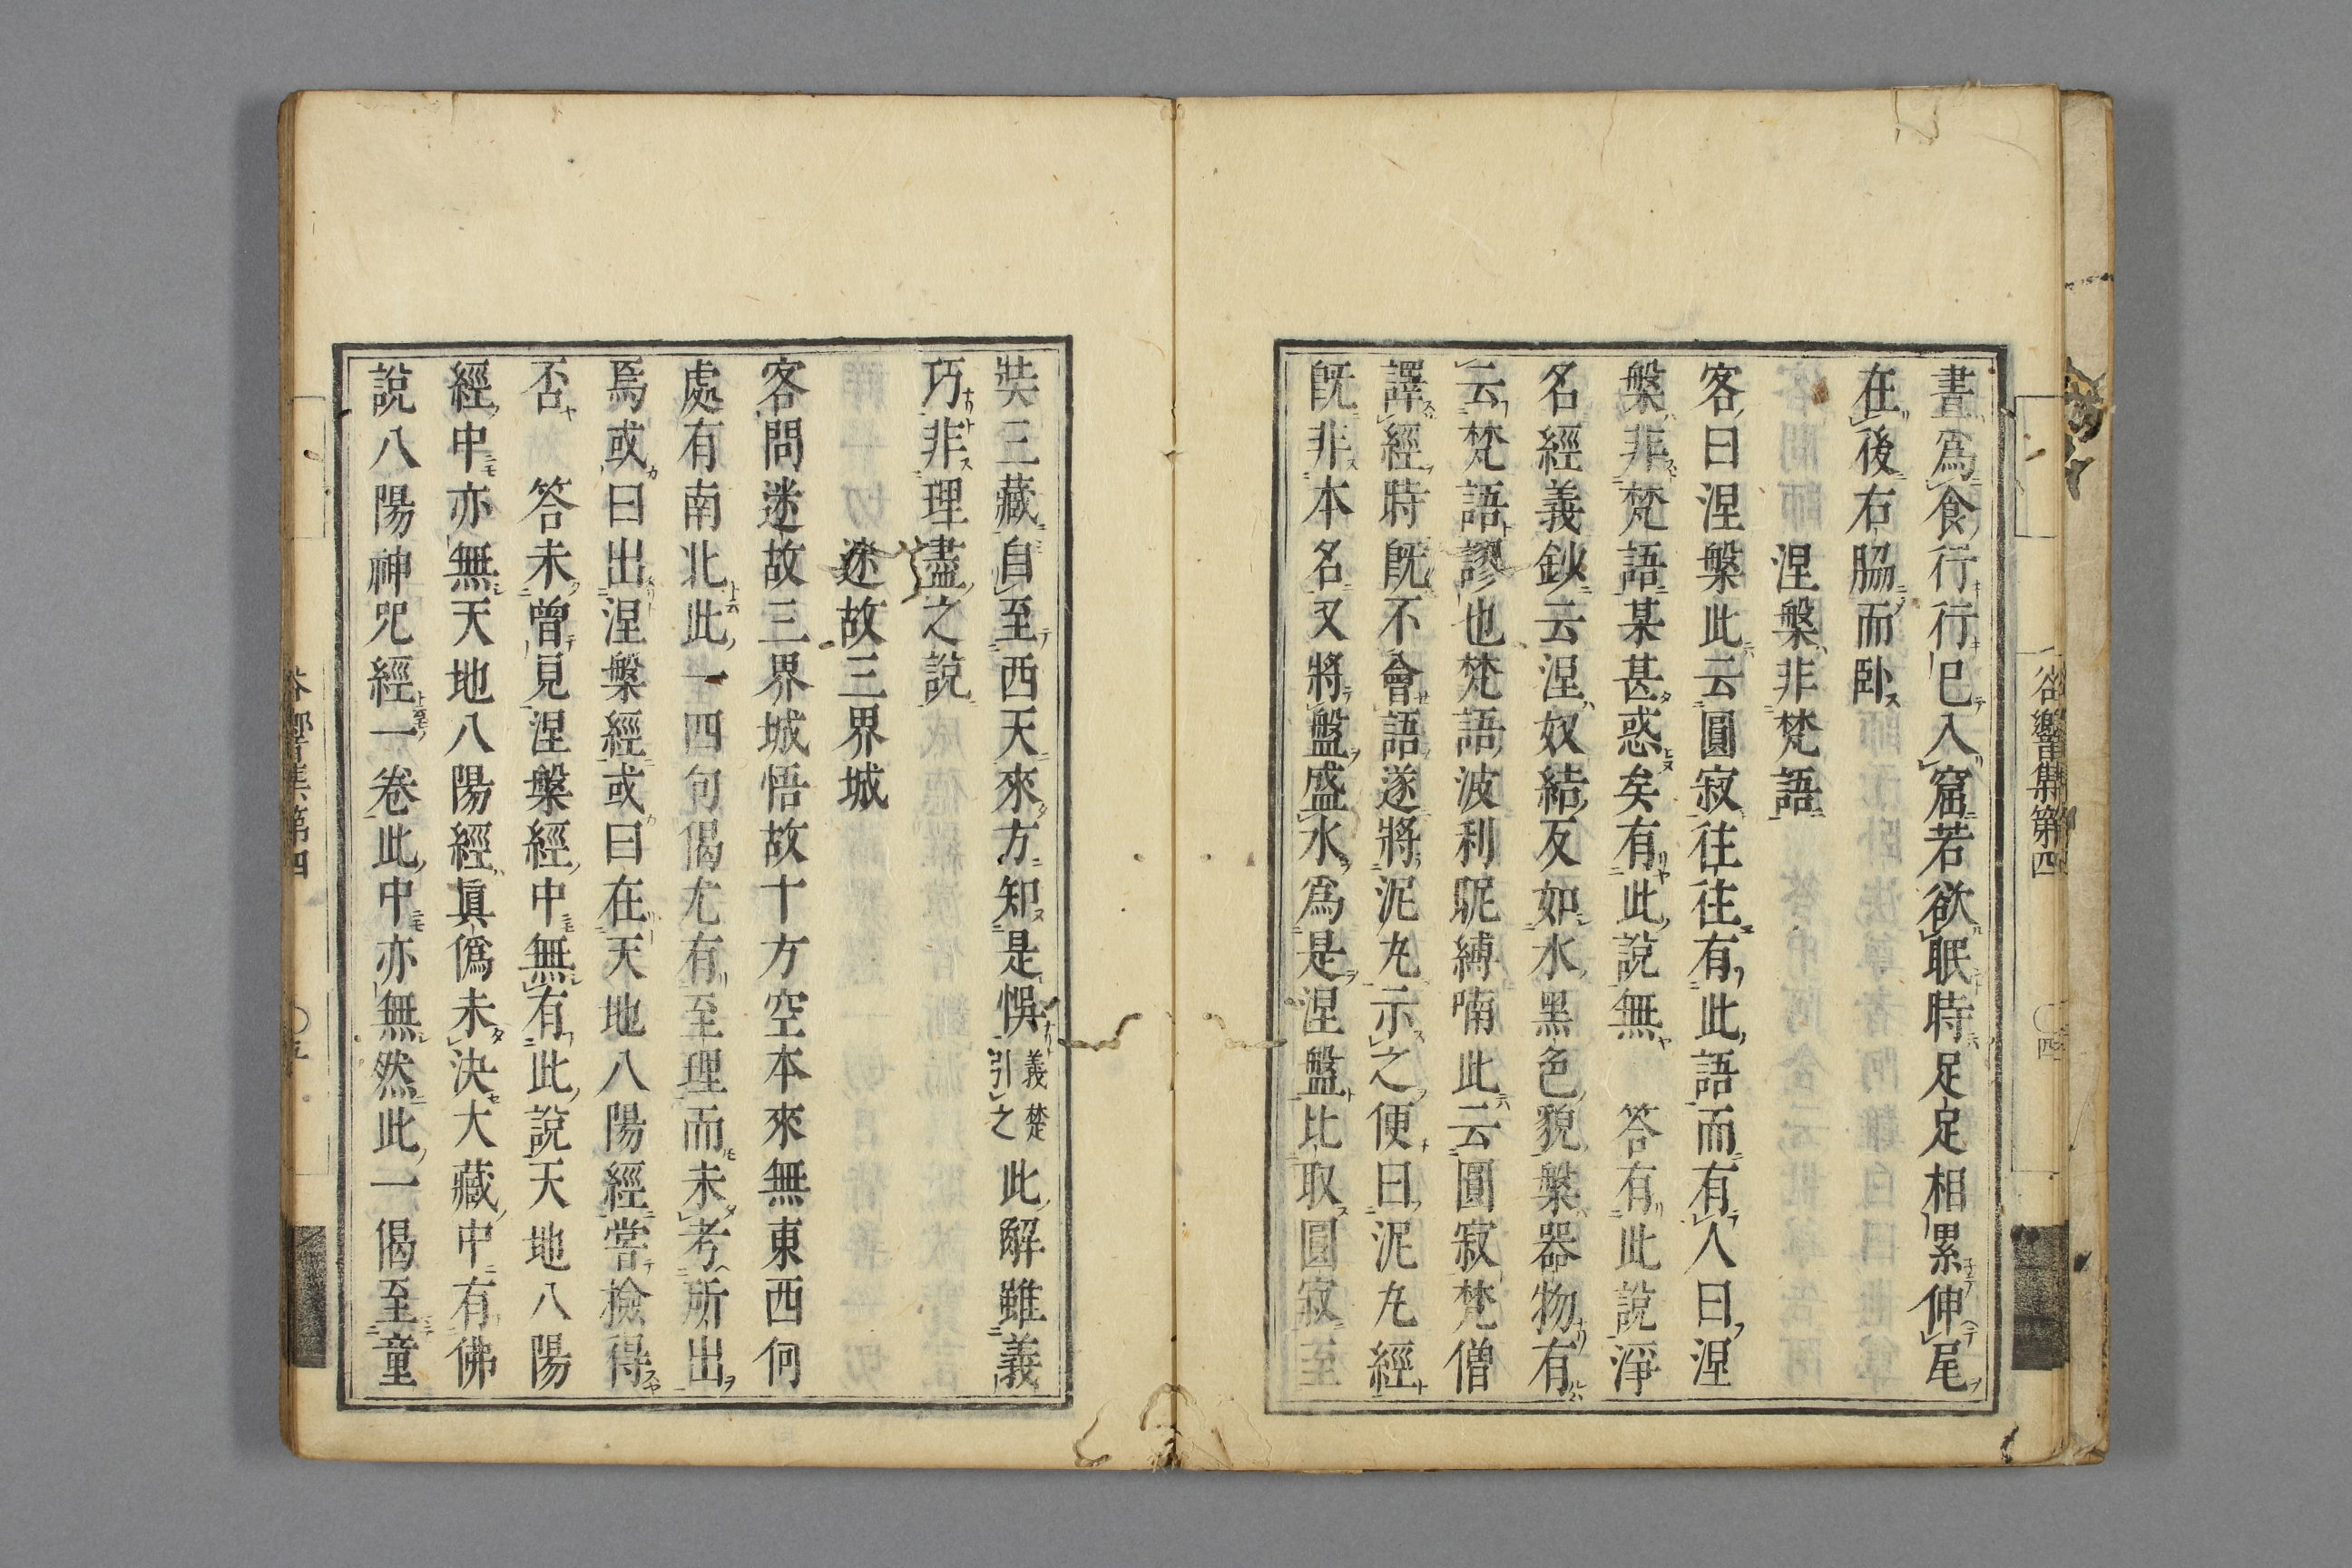 晝爲食行行已入窟若欲眠時足足相累伸尾
在後右脇而卧
涅槃非梵語
客曰涅槃此云圓寂往往有此語而有人曰涅
槃非梵語某甚惑矣有此說無　答有此說淨
名經義鈔云涅奴結反如水黑色貌槃器物有
云梵語謬也梵語波利昵縛喃此云圓寂梵僧
譯經時旣不會語遂將泥丸示之便曰泥丸經
旣非本名又將盤盛水爲是涅盤比取圓寂至
谷響集第四
〇四
奘三藏自至西天來方知是悞義楚引之此解雖義
巧非理盡之說
迷故三界城
客問迷故三界城悟故十方空本來無東西何
處有南北此一四句偈尤有至理而未考所出
焉或曰出涅槃經或曰在天地八陽經嘗撿得
否　答未曾見涅槃經中無有此說天地八陽
經中亦無天地八陽經眞僞未決大藏中有佛
說八陽神咒經一卷此中亦無然此一偈至童
谷響集第四
〇五